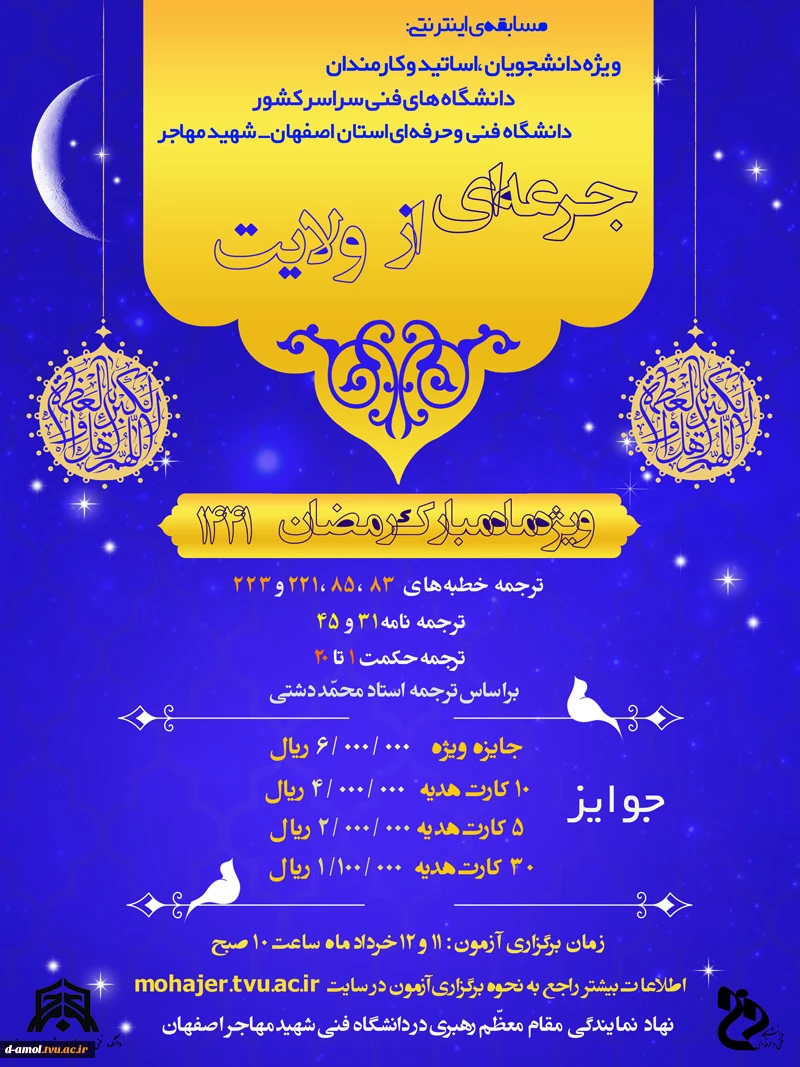 مسابقه‌ی اینترنتی:
ویژه دانشجویان ،اساتید و کارمندان
دانشگاه های فنی سراسر کشور
دانشگاه فنی وحرفه ای استان اصفهان_ شهید مهاجر
جرعه‌ای از ولایت
اللهم اهل الکبریاء والعظمة
اللهم اهل الکبریاء والعظمة
ویژه ماه مبارک رمضان ۱۴۴۱
ترجمه خطبه های ۸۳ ،۸۵ ،۲۲۱ و ۲۲۳
ترجمه نامه ۳۱ و ۴۵
ترجمه حکمت ۱ تا ۲۰
براساس ترجمه استاد محمّد دشتی
جوایز
جایزه ویژه ۶/۰۰۰/۰۰۰ ریال
۱۰ کارت هدیه ۴/۰۰۰/۰۰۰ ریال
۵ کارت هدیه ۲/۰۰۰/۰۰۰ ریال
۳۰ کارت هدیه ۱/۱۰۰/۰۰۰ ریال
زمان برگزاری آزمون : ۱۱ و ۱۲ خرداد ماه ساعت ۱۰ صبح
اطلاعات بیشتر راجع به نحوه برگزاری آزمون در سایت mohajer.tvu.ac.ir
نهاد نمایندگی مقام معظّم رهبری در دانشگاه فنی شهید مهاجر اصفهان
d-amol.tvu.ac.ir